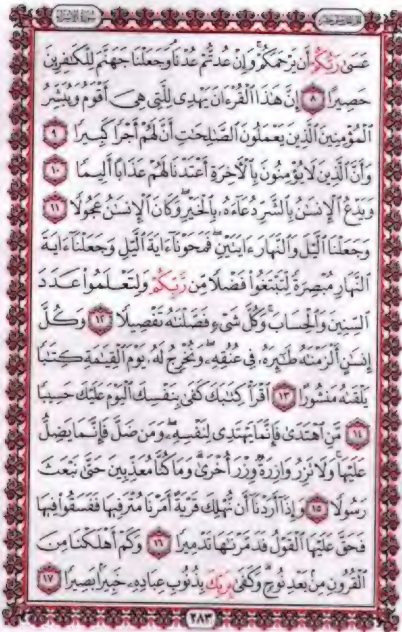 سورة الإسراء
الجزء الخامس عشر
عَسَىٰ رَبُّكُمْ أَن يَرْحَمَكُمْ ۚ وَإِنْ عُدتُّمْ عُدْنَا ۘ وَجَعَلْنَا جَهَنَّمَ لِلْكَٰفِرِينَ
حَصِيرًا ٨ إِنَّ هَٰذَا ٱلْقُرْءَانَ يَهْدِى لِلَّتِى هِىَ أَقْوَمُ وَيُبَشِّرُ
ٱلْمُؤْمِنِينَ ٱلَّذِينَ يَعْمَلُونَ ٱلصَّٰلِحَٰتِ أَنَّ لَهُمْ أَجْرًا كَبِيرًا ٩
وَأَنَّ ٱلَّذِينَ لَا يُؤْمِنُونَ بِٱلْءَاخِرَةِ أَعْتَدْنَا لَهُمْ عَذَابًا أَلِيمًا ١٠
وَيَدْعُ ٱلْإِنسَٰنُ بِٱلشَّرِّ دُعَآءَهُۥ بِٱلْخَيْرِ ۖ وَكَانَ ٱلْإِنسَٰنُ عَجُولًا ١١
وَجَعَلْنَا ٱلَّيْلَ وَٱلنَّهَارَ ءَايَتَيْنِ ۖ فَمَحَوْنَآ ءَايَةَ ٱلَّيْلِ وَجَعَلْنَآ ءَايَةَ
ٱلنَّهَارِ مُبْصِرَةً لِّتَبْتَغُوا۟ فَضْلًا مِّن رَّبِّكُمْ وَلِتَعْلَمُوا۟ عَدَدَ
ٱلسِّنِينَ وَٱلْحِسَابَ ۚ وَكُلَّ شَىْءٍ فَصَّلْنَٰهُ تَفْصِيلًا ١٢ وَكُلَّ
إِنسَٰنٍ أَلْزَمْنَٰهُ طَٰٓئِرَهُۥ فِى عُنُقِهِۦ ۖ وَنُخْرِجُ لَهُۥ يَوْمَ ٱلْقِيَٰمَةِ كِتَٰبًا
يَلْقَىٰهُ مَنشُورًا ١٣ ٱقْرَأْ كِتَٰبَكَ كَفَىٰ بِنَفْسِكَ ٱلْيَوْمَ عَلَيْكَ حَسِيبًا
١٤ مَّنِ ٱهْتَدَىٰ فَإِنَّمَا يَهْتَدِى لِنَفْسِهِۦ ۖ وَمَن ضَلَّ فَإِنَّمَا يَضِلُّ
عَلَيْهَا ۚ وَلَا تَزِرُ وَازِرَةٌ وِزْرَ أُخْرَىٰ ۗ وَمَا كُنَّا مُعَذِّبِينَ حَتَّىٰ نَبْعَثَ
رَسُولًا ١٥ وَإِذَآ أَرَدْنَآ أَن نُّهْلِكَ قَرْيَةً أَمَرْنَا مُتْرَفِيهَا فَفَسَقُوا۟ فِيهَا
فَحَقَّ عَلَيْهَا ٱلْقَوْلُ فَدَمَّرْنَٰهَا تَدْمِيرًا ١٦ وَكَمْ أَهْلَكْنَا مِنَ
ٱلْقُرُونِ مِنۢ بَعْدِ نُوحٍ ۗ وَكَفَىٰ بِرَبِّكَ بِذُنُوبِ عِبَادِهِۦ خَبِيرًۢا بَصِيرًا ١٧
٢٨٣